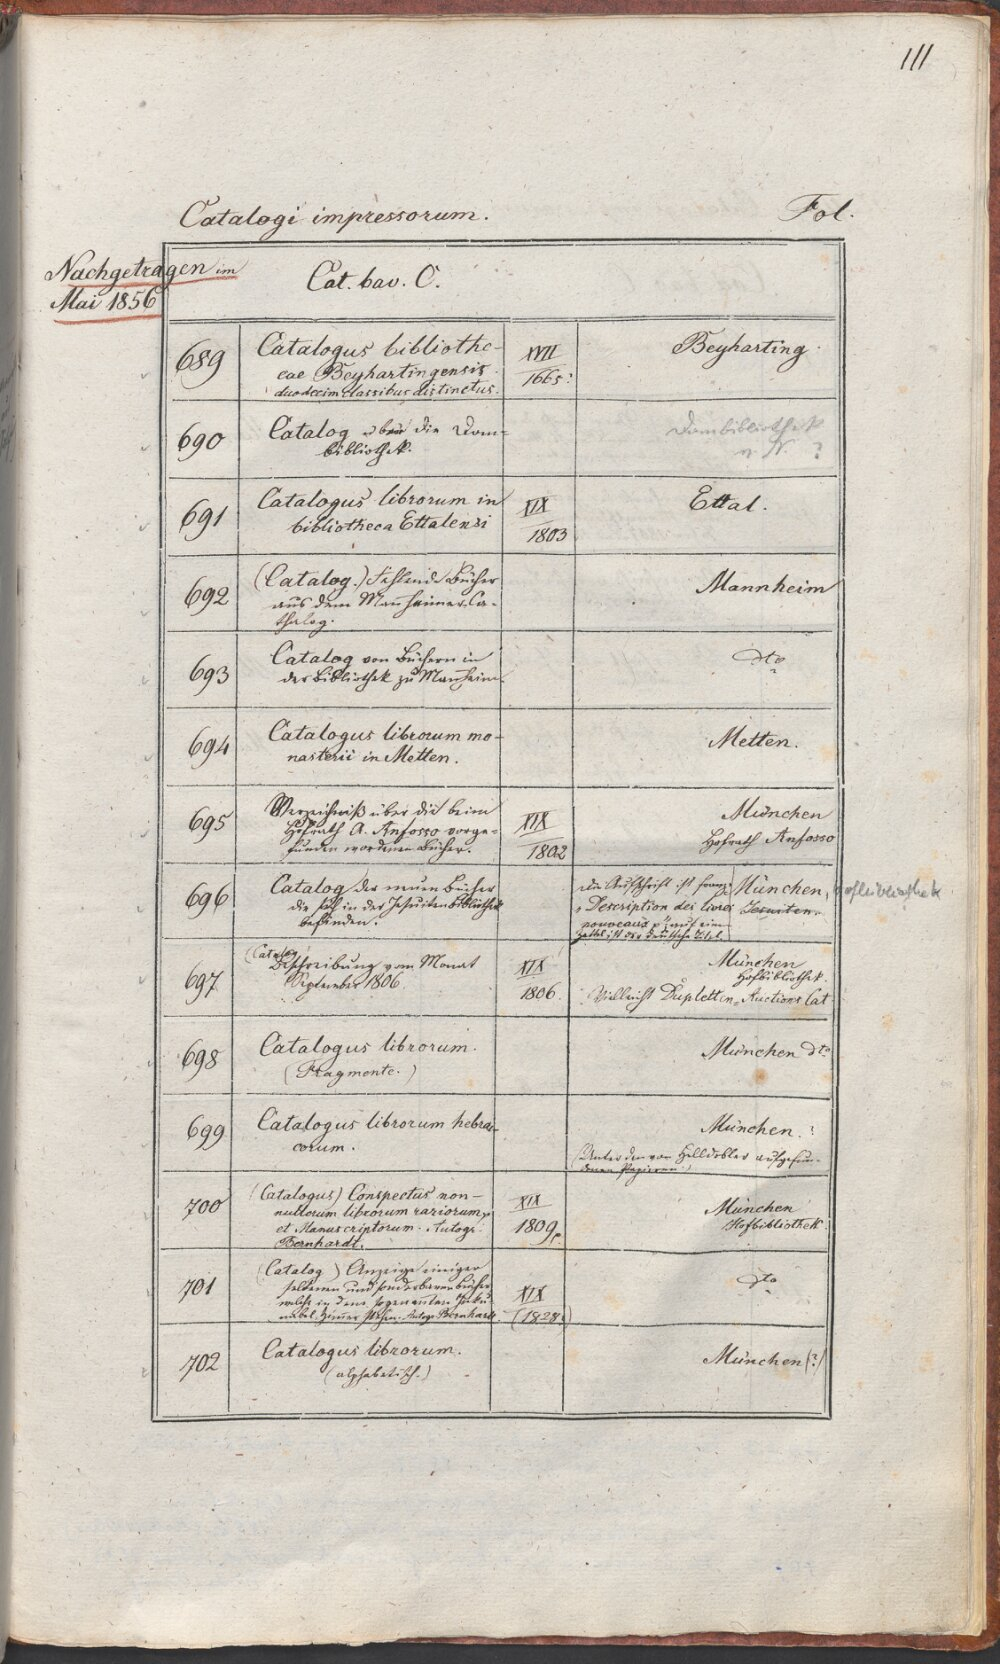 111
Catalogi impressorum. Fol.
Nachgetragen im
Mai 1856
Cat. bav. C.
689 Catalogus bibliothe-
cae Beyhartingensis
duodecim classibus distinctus.
XVII
1665.
Beyharting
690 Catalog über die Dom-
bibliothek.
Dombibliothek
v. N. ?
691 Catalogus librorum in
bibliotheca Ettalensi
XIX
1803
Ettal.
692 (Catalog.) Fehlende Bücher
aus dem Manheimer Ca-
thalog.
Mannheim
693 Catalog von Büchern in
der Bibliothek zu Manheim.
dto
694 Catalogus librorum mo-
nasterii in Metten.
Metten.
695 Verzeichniß über die beim
Hofrath A. Anfosso vorge-
funden wordenen Bücher.
XIX
1802
München
Hofrath Anfosso
696 Catalog der neuen Bücher
die sich in der Jesuiten Bibliothek
befinden.
Die Aufschrift ist franz.
"Description des livres
nouveaux" auf einem
Zettel ist der deutsche Titel.
München, Hofbibliothek
Jesuiten.
697 (Catalog)
Beschreibung vom Monat
September 1806.
XIX
1806.
München
Hofbibliothek
Vielleicht Dupletten-Auctions Cat
698 Catalogus librorum.
(Fragmente.)
München dto
699 Catalogus librorum hebrai-
corum.
München. ?
(Unter den von Helldobler aufgefun-
denen Papieren)
700 (Catalogus) Conspectus non-
nullorum librorum rariorum
et Manuscriptorum. Autogr.
Bernhardt.
XIX
1809
München
Hofbibliothek
701 (Catalog) Anzeige einiger
seltenen und sonderbaren Bücher
welche in dem sogenannten Inku-
nabel-Zimer stehen. Autogr. Bernhardt
XIX
(1828.)
dto
702 Catalogus librorum.
(alphabetisch.)
München (?)